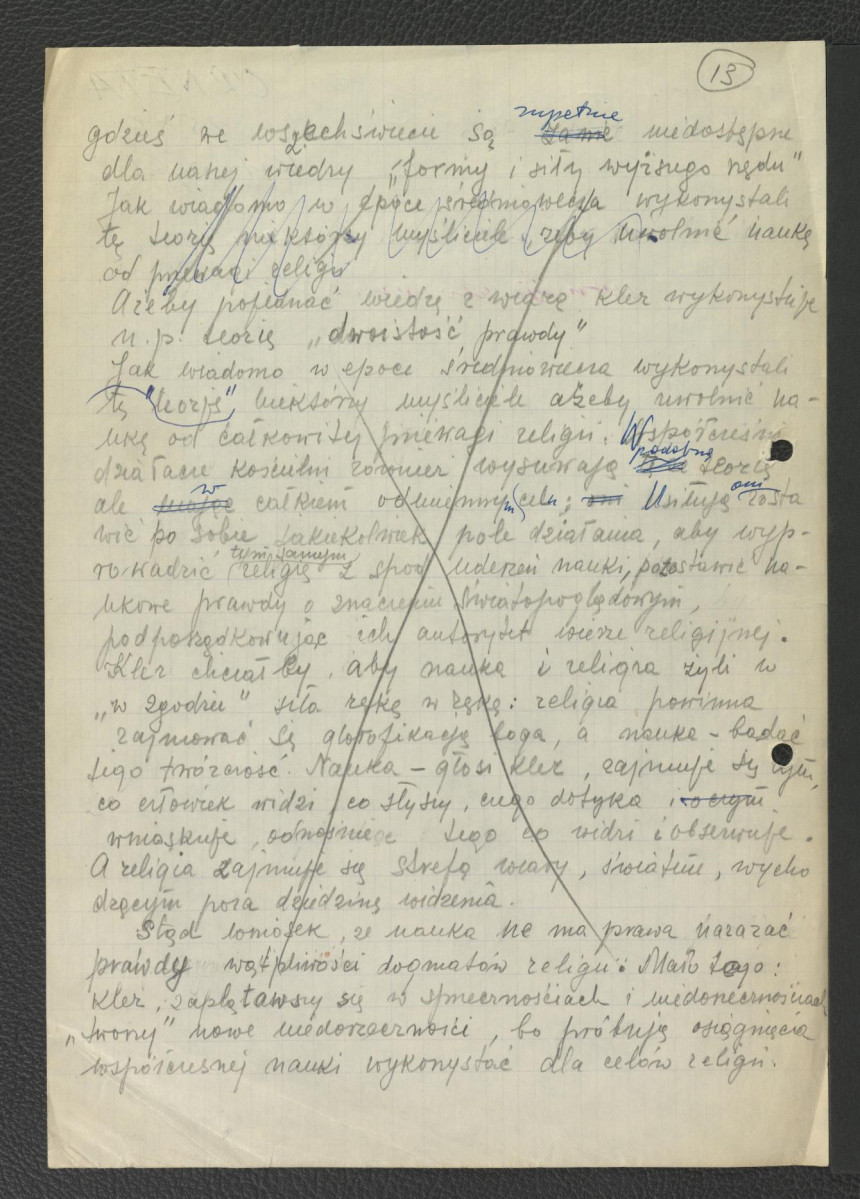 13
gdzieś we wszechświecie są zupełnie niedostępne
dla naszej wiedzy „formy i siły wyższego rzędu"
Jak wiadomo w epoce średniowiecza wykorzystali
tę teorię niektórzy myśliciele, żeby uwolnić naukę
od przewagi religii
Ażeby pojednać wiedzę z wiarą kler wykorzystuje
n.p. teorię „dwoistość prawdy"
Jak wiadomo w epoce średniowiecza wykorzystali
tę "teorję" niektórzy myśliciele ażeby uwolnić na-
ukę od całkowitej przewagi religii. Współcześni
działacze kościelni również wysuwają podobną teorię
ale w całkiem odmiennym celu; oni Usiłują zosta
wić po sobie jakiekolwiek pole działania, aby wyp-
rowadzić tym samym religię z spod uderzeń nauki, pozostawić na-
ukowe prawdy o znaczeniu światopoglądowym,
podporządkowując ich autorytet wierze religijnej.
Kler chciałby, aby nauka i religia żyli w
„w zgodzie" siła ręką w rękę: religia powinna
zajmować się glorofikacją boga, a nauka – badać
jego twórczość. Nauka – głosi kler, zajmuje się tym,
co człowiek widzi, co słyszy, czego dotyka i o czym
wnioskuje, odnośnie tego co widzi i obserwuje.
A religia zajmuje się strefą wiary, światem, wycho
dzącym poza dziedzinę widzenia.
Stąd wniosek, że nauka nie ma prawa narażać
prawdy wątpliwości dogmatów religii. Mało tego:
kler, zaplątawszy się w sprzecznościach i niedorzecznościach
„tworzy" nowe niedorzeczności, bo próbują osiągnięcia
współczesnej nauki wykorzystać dla celów religii.